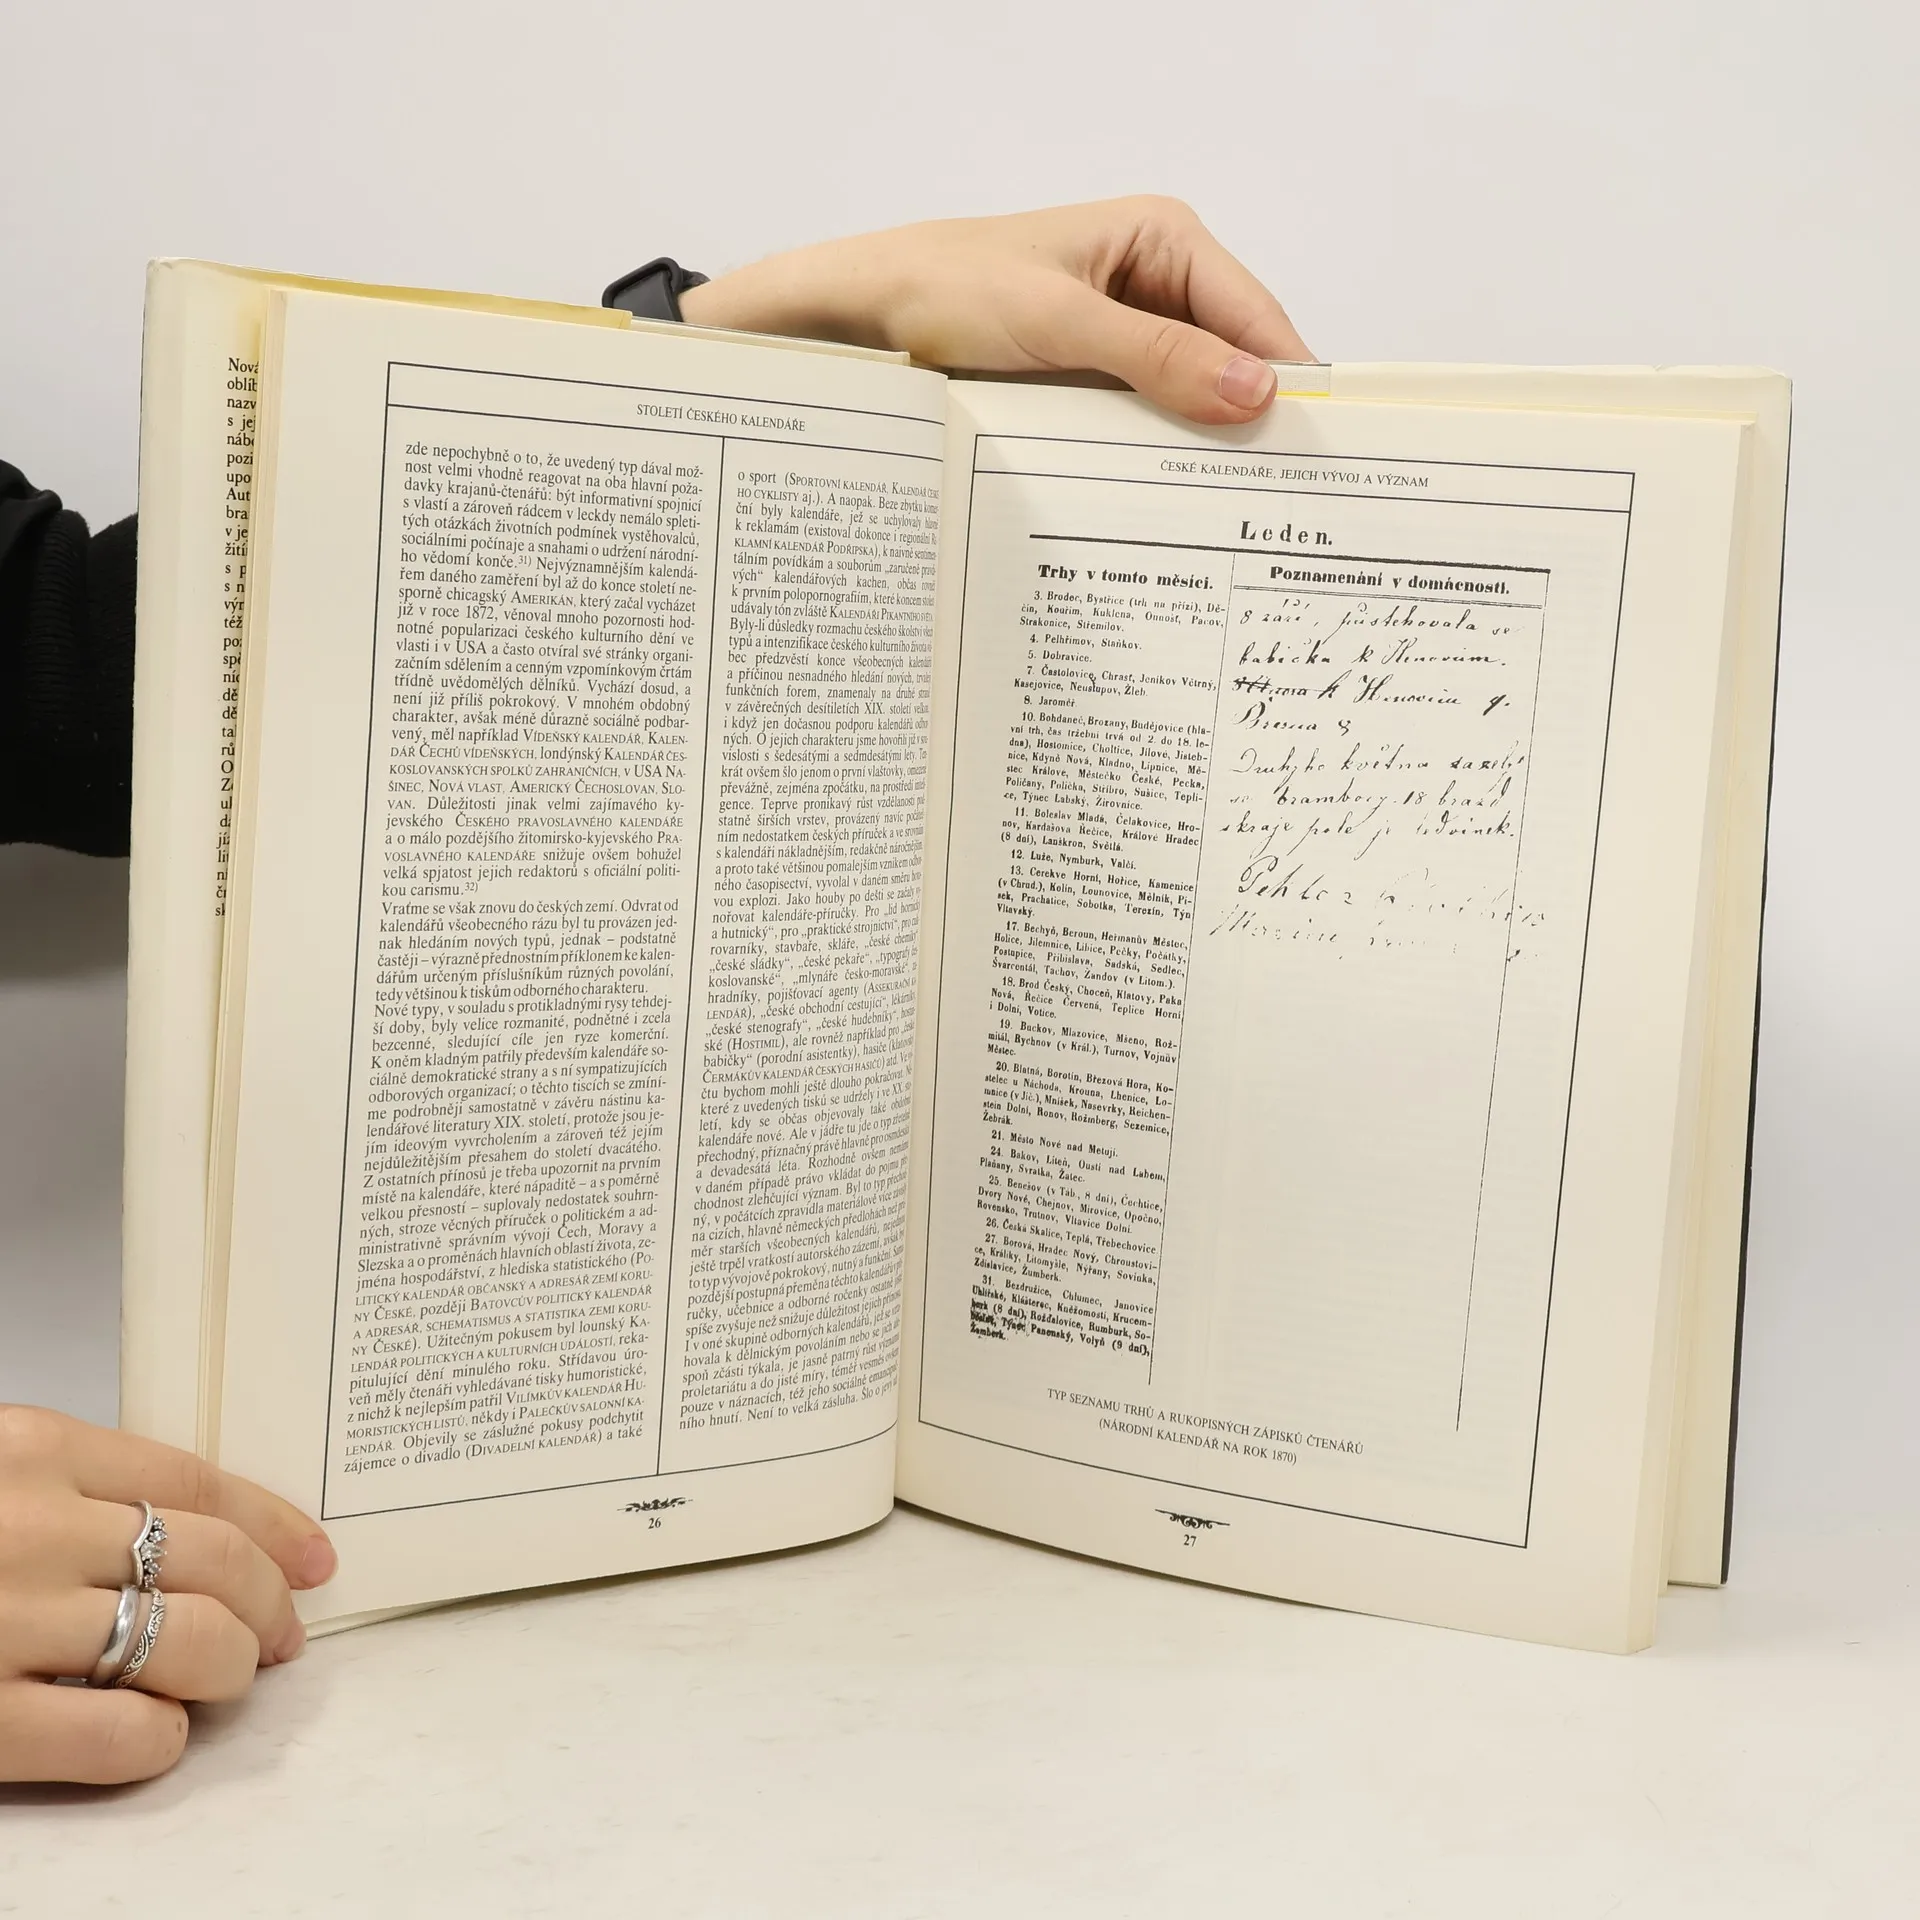 Nová
oblíb
nazv
s jej
nábo
pozi
upo
Aut
bra
v je
žití
s p
s n
výr
též
po
spě
nic
dě
dě
tal
rů
O
Ze
ul
da
jí
lit
ní
čr
sk
STOLETÍ ČESKÉHO KALENDÁŘE
zde nepochybně o to, že uvedený typ dával mož-
nost velmi vhodně reagovat na oba hlavní poža-
davky krajanů-čtenářů: být informativní spojnicí
s vlastí a zároveň rádcem v leckdy nemálo spleti-
tých otázkách životních podmínek vystěhovalců,
sociálními počínaje a snahami o udržení národní-
ho vědomí konče.31) Nejvýznamnějším kalendá-
řem daného zaměření byl až do konce století ne-
sporně chicagský AMERIKÁN, který začal vycházet
již v roce 1872, věnoval mnoho pozornosti hod-
notné popularizaci českého kulturního dění ve
vlasti i v USA a často otvíral své stránky organi-
začním sdělením a cenným vzpomínkovým črtám
třídně uvědomělých dělníků. Vychází dosud, a
není již příliš pokrokový. V mnohém obdobný
charakter, avšak méně důrazně sociálně podbar-
vený, měl například VÍDEŇSKÝ KALENDÁŘ, KALEN-
DÁŘ ČECHŮ VÍDEŇSKÝCH, londýnský KALENDÁŘ ČES-
KOSLOVANSKÝCH SPOLKŮ ZAHRANIČNÍCH, v USA NA-
ŠINEC, NOVÁ VLAST, AMERICKÝ ČECHOSLOVAN, SLO-
VAN. Důležitosti jinak velmi zajímavého ky-
jevského ČESKÉHO PRAVOSLAVNÉHO KALENDÁŘE
a o málo pozdějšího žitomirsko-kyjevského PRA-
VOSLAVNÉHO KALENDÁŘE snižuje ovšem bohužel
velká spjatost jejich redaktorů s oficiální politi-
kou carismu.32)
Vraťme se však znovu do českých zemí. Odvrat od
kalendářů všeobecného rázu byl tu provázen jed-
nak hledáním nových typů, jednak – podstatně
častěji – výrazně přednostním příklonem ke kalen-
dářům určeným příslušníkům různých povolání,
tedy většinou k tiskům odborného charakteru.
Nové typy, v souladu s protikladnými rysy tehdej-
ší doby, byly velice rozmanité, podnětné i zcela
bezcenné, sledující cíle jen ryze komerční.
K oněm kladným patřily především kalendáře so-
ciálně demokratické strany a s ní sympatizujících
odborových organizací; o těchto tiscích se zmíní-
me podrobněji samostatně v závěru nástinu ka-
lendářové literatury XIX. století, protože jsou je-
jím ideovým vyvrcholením a zároveň též jejím
nejdůležitějším přesahem do století dvacátého.
Z ostatních přínosů je třeba upozornit na prvním
místě na kalendáře, které nápaditě – a s poměrně
velkou přesností – suplovaly nedostatek souhrn-
ných, stroze věcných příruček o politickém a ad-
ministrativně správním vývoji Čech, Moravy a
Slezska a o proměnách hlavních oblastí života, ze-
jména hospodářství, z hlediska statistického (PO-
LITICKÝ KALENDÁŘ OBČANSKÝ A ADRESÁŘ ZEMÍ KORU-
NY ČESKÉ, později BATOVCŮV POLITICKÝ KALENDÁŘ
A ADRESÁŘ, SCHEMATISMUS A STATISTIKA ZEMÍ KORU-
NY ČESKÉ). Užitečným pokusem byl lounský KA-
LENDÁŘ POLITICKÝCH A KULTURNÍCH UDÁLOSTÍ, reka-
pitulující dění minulého roku. Střídavou úro-
veň měly čtenáři vyhledávané tisky humoristické,
z nichž k nejlepším patřil VILÍMKŮV KALENDÁŘ HU-
MORISTICKÝCH LISTŮ, někdy i PALEČKŮV SALONNÍ KA-
LENDÁŘ. Objevily se záslužné pokusy podchytit
zájemce o divadlo (DIVADELNÍ KALENDÁŘ) a také
o sport (SPORTOVNÍ KALENDÁŘ, KALENDÁŘ ČESKÉ-
HO CYKLISTY aj.). A naopak. Beze zbytku komer-
ční byly kalendáře, jež se uchylovaly hlavně
k reklamám (existoval dokonce i regionální RE-
KLAMNÍ KALENDÁŘ PODŘIPSKA), k naivně sentimen-
tálním povídkám a souborům „zaručeně pravdi-
vých“ kalendářových kachen, občas rovněž
k prvním polopornografiím, které koncem století
udávaly tón zvláště KALENDÁŘI PIKANTNÍHO SVĚTA.
Byly-li důsledky rozmachu českého školství všech
typů a intenzifikace českého kulturního života vů-
bec předzvěstí konce všeobecných kalendářů
a příčinou nesnadného hledání nových, trvalejších
funkčních forem, znamenaly na druhé straně
v závěrečných desítiletích XIX. století velkou,
i když jen dočasnou podporu kalendářů odbor-
ných. O jejich charakteru jsme hovořili již v sou-
vislosti s šedesátými a sedmdesátými lety. Ten-
krát ovšem šlo jenom o první vlaštovky, omezené
převážně, zejména zpočátku, na prostředí inteli-
gence. Teprve pronikavý růst vzdělanosti pod-
statně širších vrstev, provázený navíc počáteč-
ním nedostatkem českých příruček a ve srovnání
s kalendáři nákladnějším, redakčně náročnějším
a proto také většinou pomalejším vznikem odbor-
ného časopisectví, vyvolal v daném směru hoto-
vou explozi. Jako houby po dešti se začaly vy-
nořovat kalendáře-příručky. Pro „lid hornický
a hutnický“, pro „praktické strojnictví“, pro cuk-
rovarníky, stavbaře, skláře, „české chemiky“,
„české sládky“, „české pekaře“, „typografy čes-
koslovanské“, „mlynáře česko-moravské“, za-
hradníky, pojišťovací agenty (ASSEKURAČNÍ KA-
LENDÁŘ), „české obchodní cestující“, lékárníky,
„české stenografy“, „české hudebníky“, hostin-
ské (HOSTIMIL), ale rovněž například pro „české
babičky“ (porodní asistentky), hasiče (klatovský
ČERMÁKŮV KALENDÁŘ ČESKÝCH HASIČŮ) atd. Ve vý-
čtu bychom mohli ještě dlouho pokračovat. Ně-
které z uvedených tisků se udržely i ve XX. sto-
letí, kdy se občas objevovaly také obdobné
kalendáře nové. Ale v jádře tu jde o typ zřetelně
přechodný, příznačný právě hlavně pro osmdesátá
a devadesátá léta. Rozhodně ovšem nemáme
v daném případě právo vkládat do pojmu pře-
chodnost zlehčující význam. Byl to typ přechod-
ný, v počátcích zpravidla materiálově více závislý
na cizích, hlavně německých předlohách než prů-
měr starších všeobecných kalendářů, nejednou
ještě trpěl vratkostí autorského zázemí, avšak byl
to typ vývojově pokrokový, nutný a funkční. Sama
pozdější postupná přeměna těchto kalendářů v pří-
ručky, učebnice a odborné ročenky ostatně ještě
spíše zvyšuje než snižuje důležitost jejich přínosu.
I v oné skupině odborných kalendářů, jež se vzta-
hovala k dělnickým povoláním nebo se jich ale-
spoň zčásti týkala, je jasně patrný růst významu
proletariátu a do jisté míry, téměř vesměs ovšem
pouze v náznacích, též jeho sociálně emancipač-
ního hnutí. Není to velká zásluha. Šlo o jevy už
26
ČESKÉ KALENDÁŘE, JEJICH VÝVOJ A VÝZNAM
Leden.
Trhy v tomto měsíci.
3. Brodec, Bystřice (trh na přízi), Dě-
čín, Kouřim, Kuklena, Onnošť, Pacov,
Strakonice, Střemilov.
4. Pelhřimov, Staňkov.
5. Dobravice.
7. Častolovice, Chrast, Jenikov Větrný,
Kasejovice, Neustupov, Žleb.
8. Jaroměř.
10. Bohdaneč, Brozany, Budějovice (hla-
vní trh, čas tržební trvá od 2. do 18. le-
dna), Hostomice, Choltice, Jílové, Jisteb-
nice, Kdyně Nová, Kladno, Lipnice, Mě-
stec Králove, Městečko České, Pecka,
Poličany, Polička, Stříbro, Sušice, Tepli-
ce, Týnec Labský, Žirovnice.
11. Boleslav Mladá, Čelakovice, Hro-
nov, Kardašova Řečice, Králové Hradec
(8 dní), Lanškron, Světlá.
12. Luže, Nymburk, Valčí.
13. Cerekve Horní, Hořice, Kamenice
(v Chrud.), Kolín, Lounovice, Mělník, Pí-
sek, Prachatice, Sobotka, Terezín, Týn
Vltavský.
17. Bechyň, Beroun, Heřmanův Městec,
Holice, Jilemnice, Libice, Pečky, Počátky,
Postupice, Přibislava, Sadská, Sedlec,
Švarcentál, Tachov, Žandov (v Litom.).
18. Brod Český, Choceň, Klatovy, Paka
Nová, Řečice Červená, Teplice Horní
i Dolní, Votice.
19. Buckov, Mlazovice, Mšeno, Rož-
mitál, Rychnov (v Král.), Turnov, Vojnův
Městec.
20. Blatná, Borotín, Březová Hora, Ko-
stelec u Náchoda, Krouna, Lhenice, Lo-
mnice (v Jič.), Mníšek, Nasevrky, Reichen-
stein Dolní, Ronov, Rožmberg, Sezemice,
Žebrák.
21. Město Nové nad Metují.
24. Bakov, Liteň, Oustí nad Labem,
Plaňany, Svratka, Žatec.
25. Benešov (v Táb., 8 dní), Čechtice,
Dvory Nové, Chejnov, Mirovice, Opočno,
Rovensko, Trutnov, Vltavice Dolní.
26. Česká Skalice, Teplá, Třebechovice
27. Borová, Hradec Nový, Chroustovi-
ce, Králíky, Litomyšle, Nýřany, Sovinka,
Zdislavice, Žumberk.
31. Bezdružice, Chlumec, Janovice
Uhlířské, Klášterec, Kněžomosti, Krucem-
burk (8 dní), Rožďalovice, Rumburk, So-
běslav, Týnec Panenský, Volyň (9 dní),
Žamberk.
Poznamenání v domácnosti.
8 září, přistehovala se
babička k
k
Druhyho května sazely
se brambory. 18 brázd
skraje pole je ledvinek.
TYP SEZNAMU TRHŮ A RUKOPISNÝCH ZÁPISKŮ ČTENÁŘŮ
(NÁRODNÍ KALENDÁŘ NA ROK 1870)
27